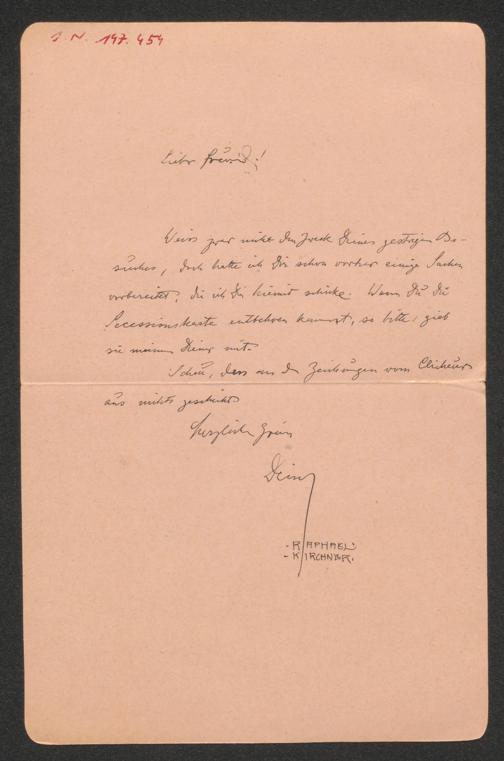 J. N. 147.454
Lieber Freund!
Weiss zwar nicht den Zweck Deines gestrigen Be-
suches, doch hatte ich Dir schon vorher einige Sachen
vorbereitet, die ich Dir hiemit schicke. Wenn Du die
Secessionskarte entbehren kannst, so bitte, gieb
sie meinem Diener mit.
Schau, dass an den Zeichnungen vom Clicheur
aus nichts geschieht
Herzlichen Gruss
Dein
RAPHAEL
KIRCHNER.